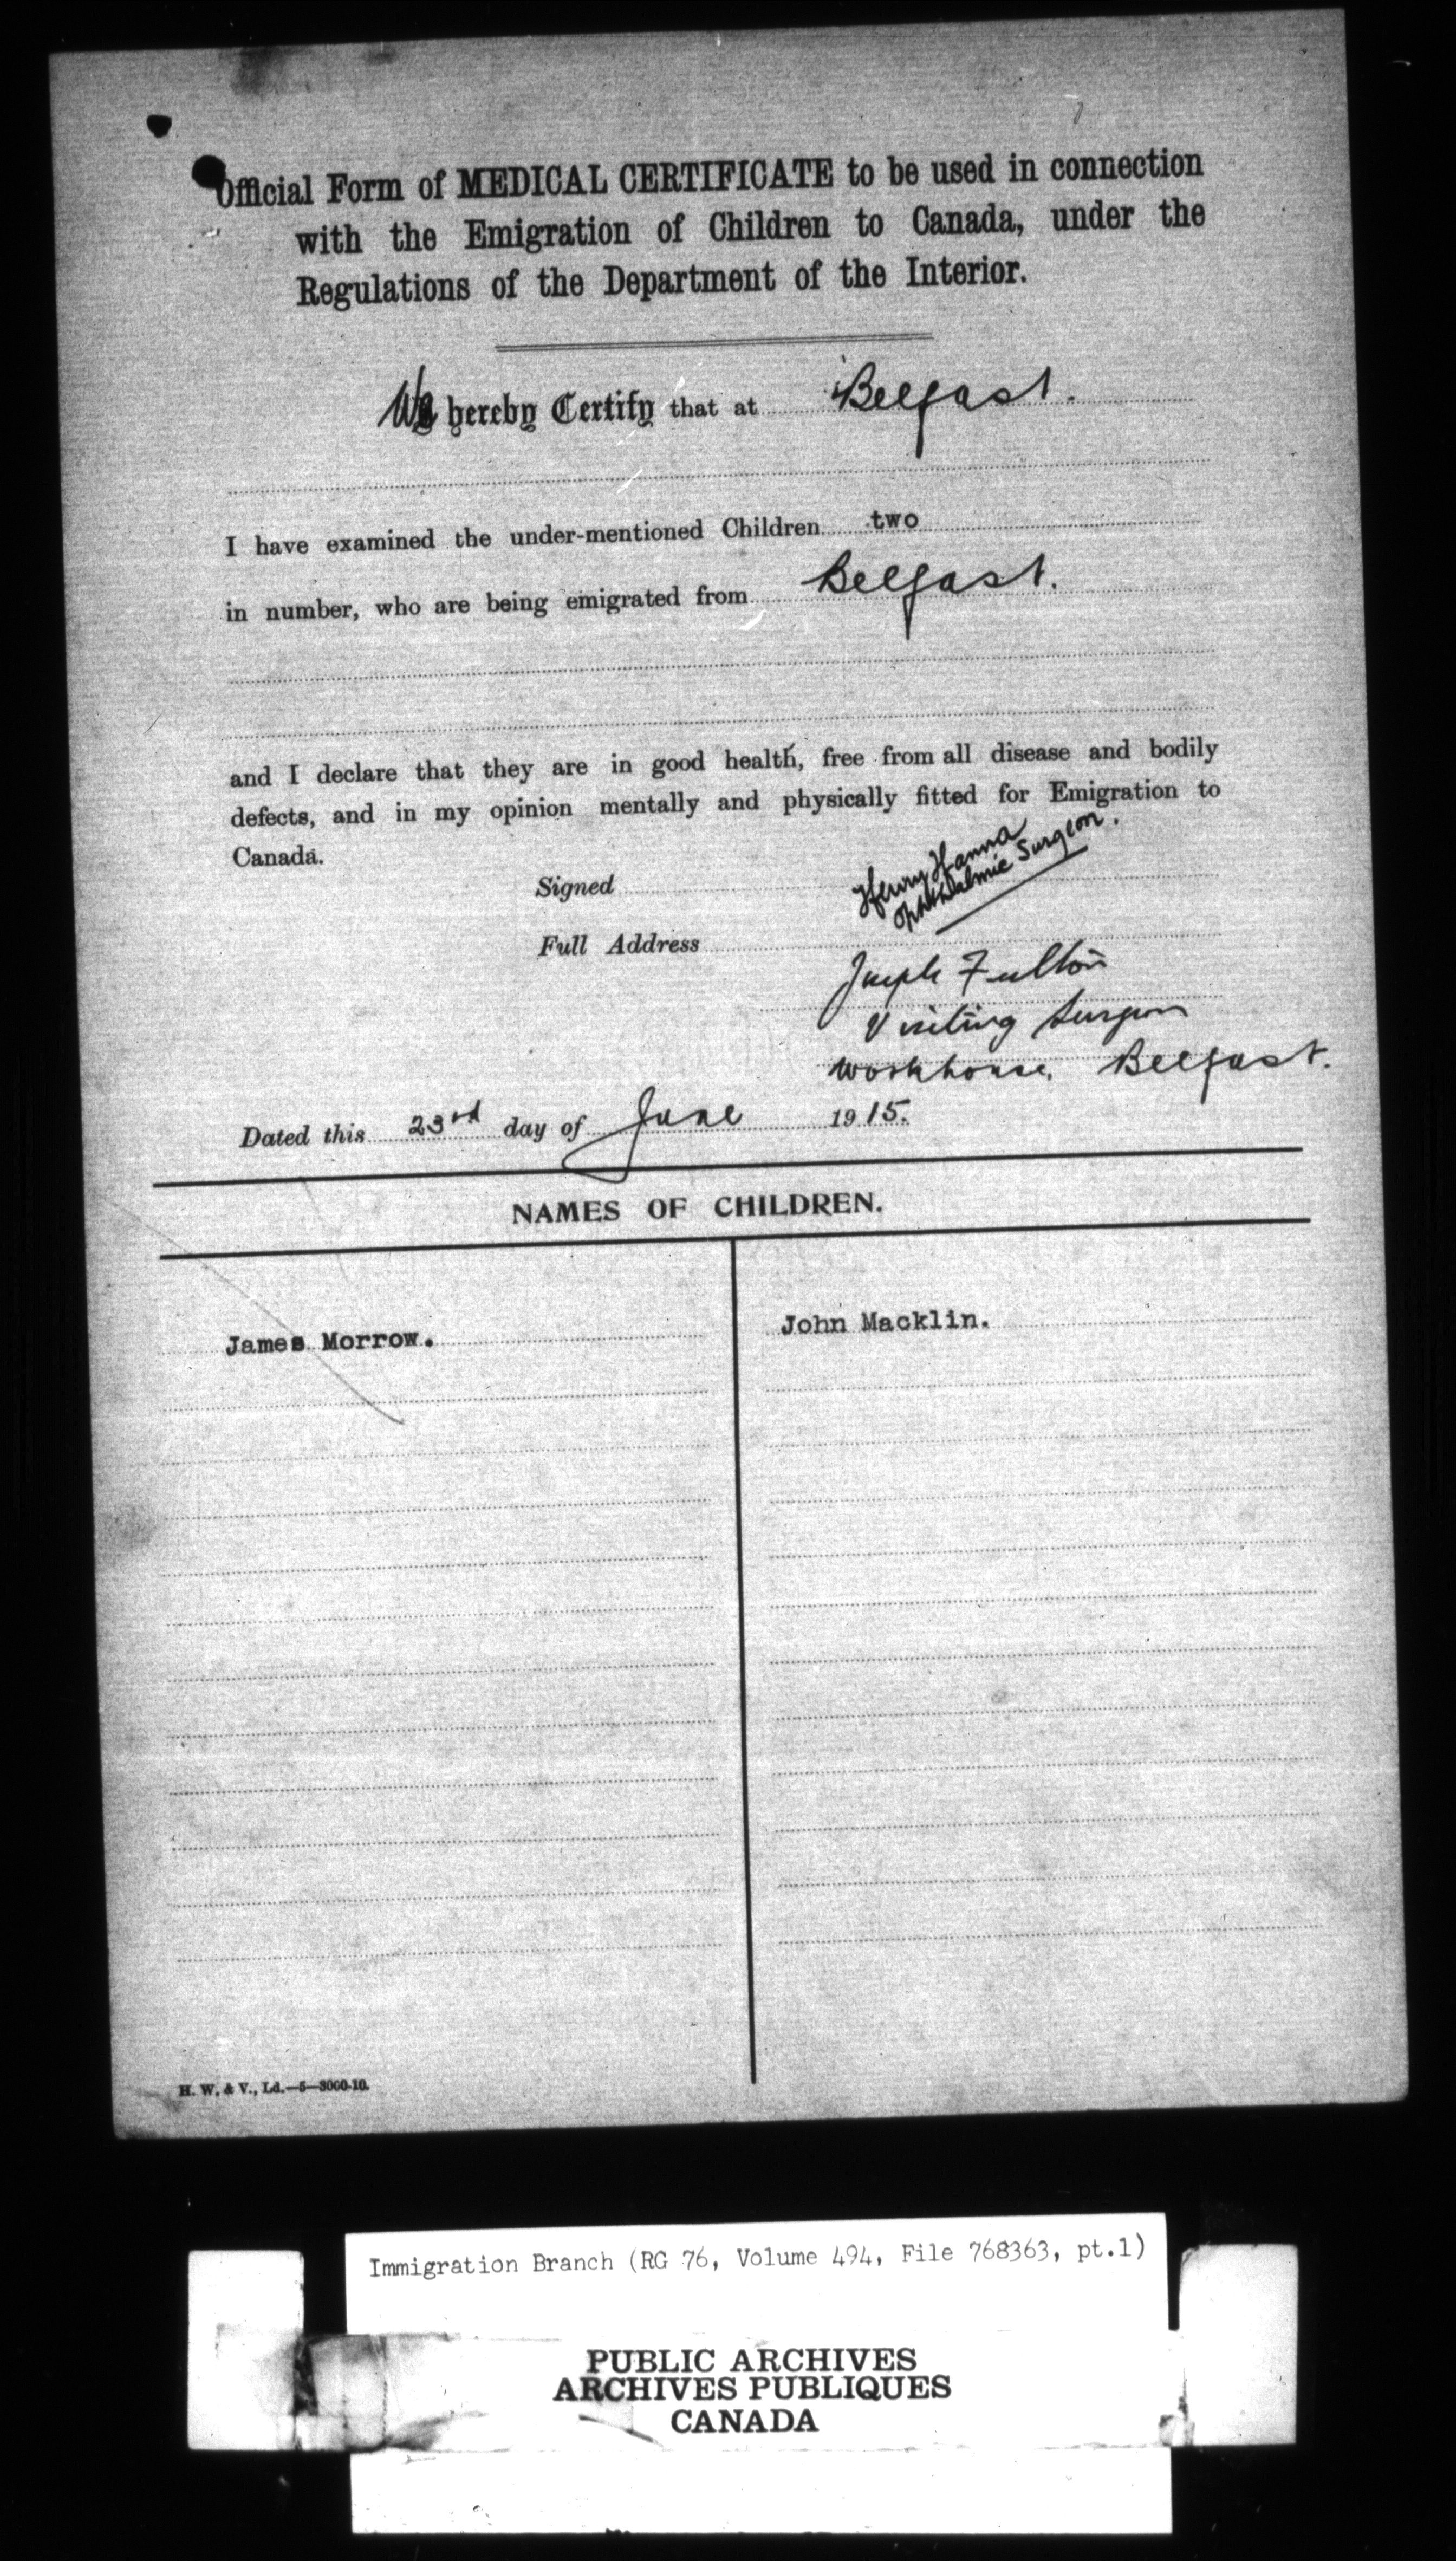 Official Form of MEDICAL CERTIFICATE to be used in connection
with the Emigration of Children to Canada, under the
Regulations of the Department of the Interior.
We hereby Certify that at Belfast.
I have examined the under-mentioned Children two
in number, who are being emigrated from Belfast.
and I declare that they are in good health, free from all disease and bodily
defects, and in my opinion mentally and physically fitted for Emigration to
Canada.
Signed Henry Hanna
Ophthalmic Surgeon.
Full Address
Joseph Fulton
Visiting Surgeon
Workhouse, Belfast.
Dated this 23rd day of June 1915.
NAMES OF CHILDREN.
James Morrow.
John Macklin.
H. W. & V., Ld.—5—3000-10.
Immigration Branch (RG 76, Volume 494, File 768363, pt.1)
PUBLIC ARCHIVES
ARCHIVES PUBLIQUES
CANADA